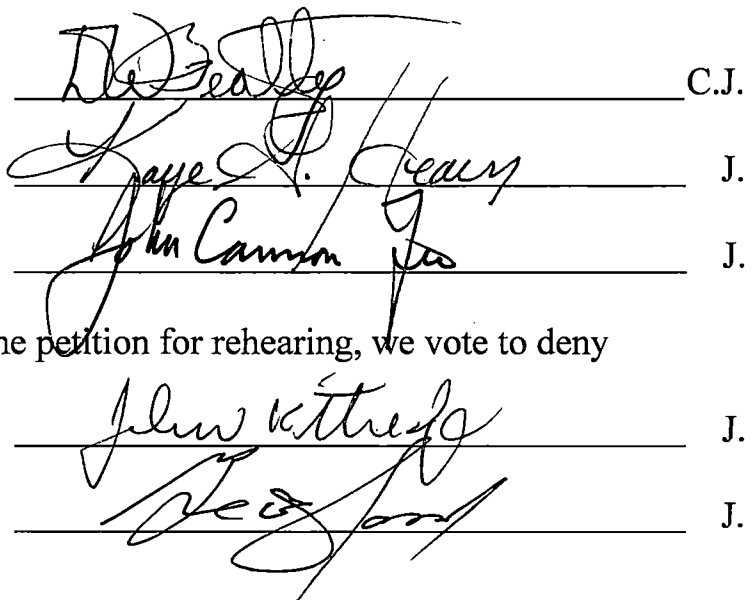 C.J.
Kaye G. Hearn J.
John Cannon Few J.
petition for rehearing, we vote to deny
John Kittredge J.
J.